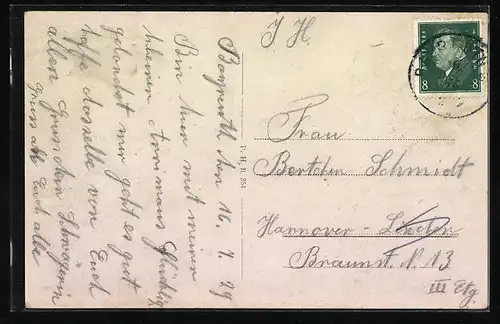 Bayreuth den 16. 7. 29
Bin hier mit meiner
kleinen glücklich
gelandet mir geht es gut
hoffe dasselbe von Euch
allen Gruss Dein Schwägerin
Gruss alle Euch alle
P. H. B. 354
I H.
DEUTSCHES REICH
8 8
Frau
Bertchen Schmidt
Hannover-Linden
Braunst. N. 13
III Etg.